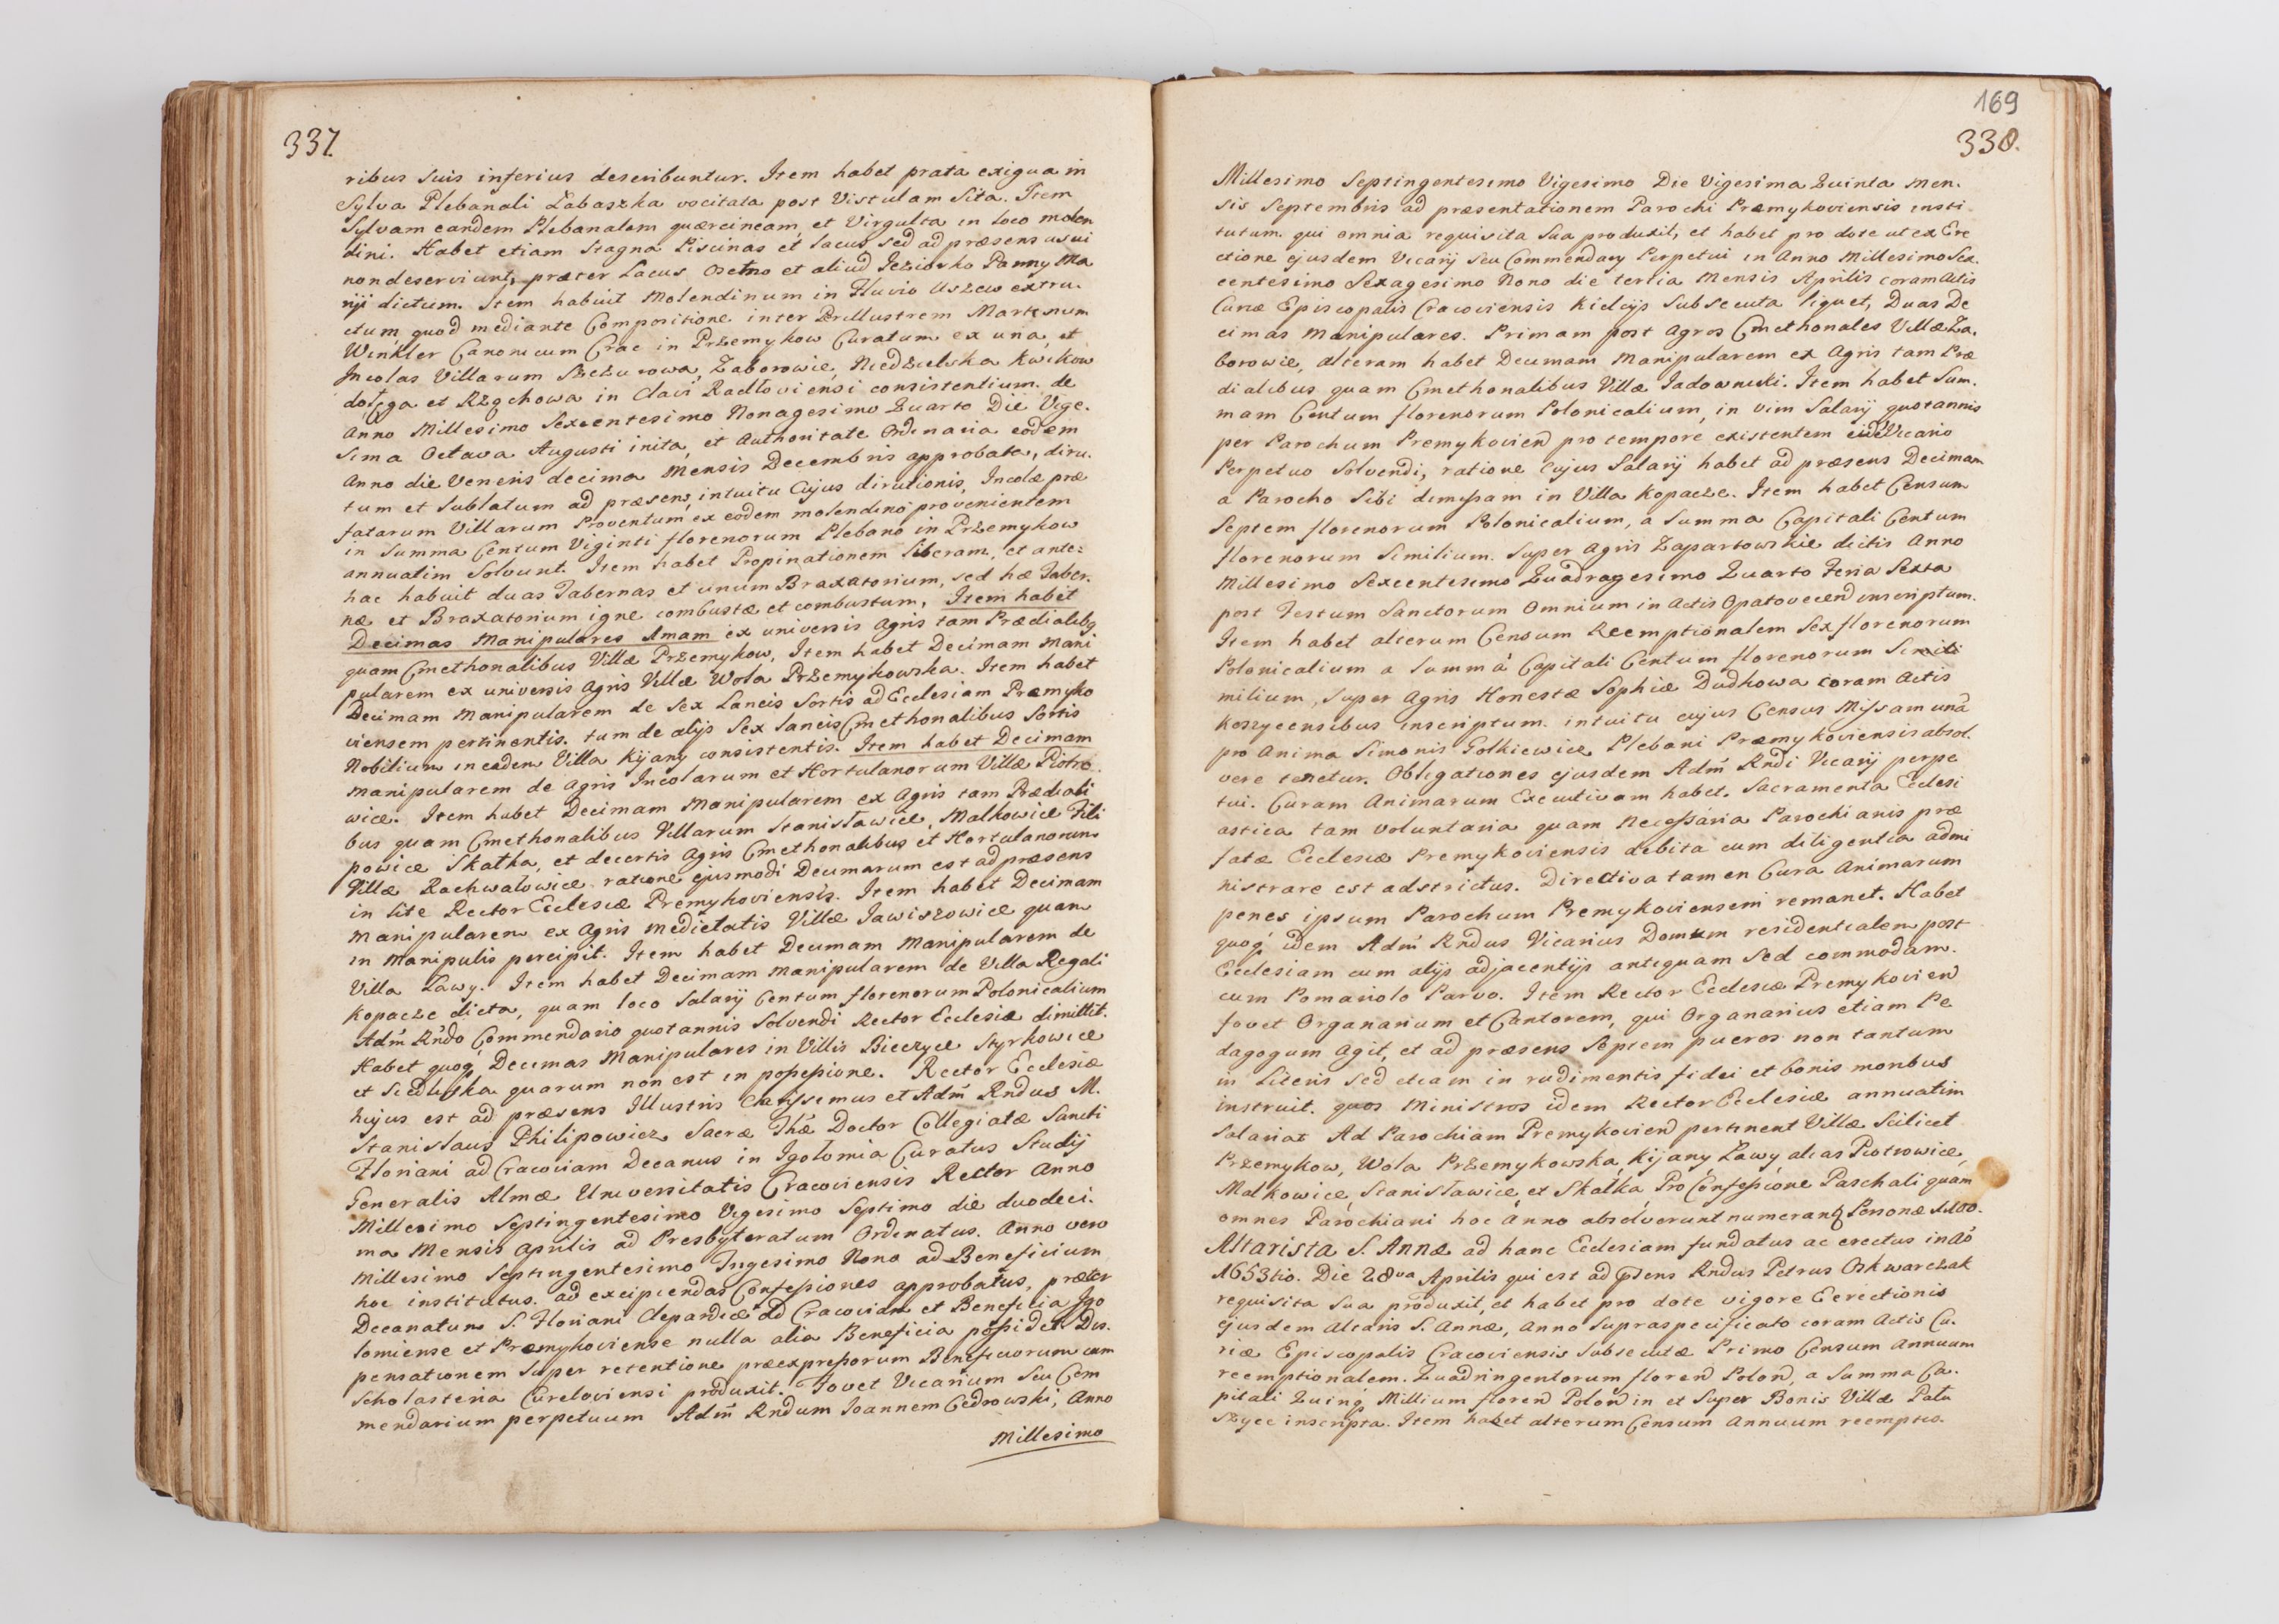 337.
ribus suis inferius describuntur. Item habet prata exigua in
Sylva Plebanali Zabaszka vocitata post Vistulam Sita. Item
Sylvam eandem Plebanalem quærcineam, et Virgulta in loco molen
dini. Habet etiam Stagna Piscinas et lacus sed ad præsens usui
non deserviunt, præter Lacus Osetno et aliud Jeziorko Panny Ma
ryi dictum. Item habuit Molendinum in Fluvio Uszew extru.
ctum, quod mediante Compositione inter Perillustrem Martinum
Winkler Canonicum Crac in Przemykow Curatum ex una, et
Incolas Villarum Szczurowa, Zaborowie, Niedzieliska Kwikow
dołęga et Rzqchowa in Clavi Radłoviensi consistentium. de
Anno Millesimo Sexcentesimo Nonagesimo Quarto Die Vige.
sima Octava Augusti inita, et Authoritate Ordinaria eodem
Anno die Veneris decima Mensis Decembris approbata, diru.
tum et sublatum ad præsens, intuitu Cujus dirutionis, Incolæ præ
fatarum Villarum Proventum ex eodem molendino provenientem
in Summa Centum Viginti florenorum Plebano in Przemykow
annuatim Solvunt. Item habet Propinationem liberam, et ante-
hac habuit duas Tabernas et unum Braxatorium, sed hæ Taber.
næ et Braxatorium igne combustæ et combustum. Item habet
Decimas Manipulares 1mam ex universis agris tam Prædialibq
quam Cmethonalibus Villæ Przemykow, Item habet Decimam Mani
pularem ex universis agris Villæ Wola Przemykowska. Item habet
Decimam Manipularem de Sex Laneis Sortis ad Ecclesiam Præmyko
viensem pertinentis. tum de alijs Sex laneis Cmethonalibus Sortis
Nobilium in eadem Villa Kijany consistentis. Item habet Decimam
manipularem de Agris Incolarum et Hortulanorum Villæ Piotro
wice. Item habet Decimam Manipularem ex Agris tam Prædiali
bus quam Cmethonalibus Villarum Stanisławice, Malkowice Fili
powice Skałka, et de certis Agris Cmethonalibus et Hortulanorum
Villæ Rachwałowice ratione ejusmodi Decimarum est ad præsens
in lite Rector Ecclesiæ Premykoviensis. Item habet Decimam
Manipularem ex Agris medietatis Villæ Jawiszowice quam
in Manipulis percipit. Item habet Decimam Manipularem de
Villa Ławy. Item habet Decimam manipularem de Villa Regali
Kopacze dicta, quam loco Salarij Centum florenorum Polonicalium
Adm̃ Rndo Commendario quotannis Solvendi Rector Ecclesiæ dimittit.
Habet quoq Decimas Manipulares in Villis Bieczyce Styrkowice
et Siedliska quarum non est in possessione. Rector Ecclesiæ
hujus est ad præsens Illustris Clarissimus et Adm̃ Rndus M.
Stanislaus Philipowicz Sacræ Thæ Doctor Collegiatæ Sancti
Floriani ad Cracoviam Decanus in Igołomia Curatus Studij
Generalis Almæ Universitatis Cracoviensis Rector Anno
Millesimo Septingentesimo Vigesimo Septimo die duodeci.
ma Mensis Aprilis ad Presbyteratum Ordinatus. Anno vero
Millesimo Septingentesimo Trigesimo Nono ad Beneficium
hoc institutus. ad excipiendas Confessiones approbatus, præter
Decanatum S. Floriani Clepardiæ ad Cracoviam et Beneficia Igo
lomiense et Præmykoviense nulla alia Beneficia possidet. Dis.
pensationem super retentione præexpressorum Beneficiorum cum
Scholasteria Cureloviensi produxit. Fovet Vicarium Seu Com
mendarium perpetuum Adm̃ Rndum Joannem Cedrowski, Anno
Millesimo
169
338.
Millesimo Septingentesimo Vigesimo Die Vigesima Quinta Men.
sis Septembris ad præsentationem Parochi Præmykoviensis insti
tutum. qui omnia requisita Sua produxit, et habet pro dote ut ex Ere
ctione ejusdem Vicarij Seu Commendarij Perpetui in Anno Millesimo Sex.
centesimo Sexagesimo Nono die tertia Mensis Aprilis coram Actis
Curiæ Episcopalis Cracoviensis Kielcijs Subsecuta liquet, Duas De
cimas Manipulares. Primam post Agros Cmethonales Villæ Za.
borowie, alteram habet Decimam Manipularem ex Agris tam Præ
dialibus quam Cmethonalibus Villæ Jadowniki. Item habet Sum.
mam Centum florenorum Polonicalium, in vim Salarij quotannis
per Parochum Premykovien pro tempore existentem eidē Vicario
Perpetuo Solvendi, ratione Cujus Salarij habet ad præsens Decimam
a Parocho Sibi dimissam in Villa Kopacze. Item habet Censum
Septem florenorum Polonicalium, a Summa Capitali Centum
florenorum Similium. Super Agris Zapartowskie dictis Anno
Millesimo Sexcentesimo Quadragesimo Quarto Feria Sexta
post Festum Sanctorum Omnium in Actis Opatovecen inscriptum.
Item habet alterum Censum Reemptionalem Sex florenorum
Polonicalium a Summa Capitali Centum florenorum Simili
milium, Super Agris Honestæ Sophiæ Dudkowa coram Actis
Koszycensibus inscriptum. intuitu cujus Census Missam una
pro Anima Simonis Golkiewicz Plebani Præmykoviensis absol
vere tenetur. Obligationes ejusdem Adm̃ Rndi Vicarij perpe
tui. Curam Animarum Executivam habet. Sacramenta Ecclesi
astica tam voluntaria quam Necessaria Parochianis præ
fatæ Ecclesiæ Premykoviensis debita cum diligentia admi
nistrare est adstrictus. Directiva tamen Cura Animarum
penes ipsum Parochum Premykoviensem remanet. Habet
quoq idem Adm̃ Rndus Vicarius Domum residentialem post
Ecclesiam cum alijs adjacentijs antiquam Sed commodam.
cum Pomariolo Parvo. Item Rector Ecclesiæ Premykovien
fovet Organarium et Cantorem, qui Organarius etiam Pe
dagogum agit, et ad præsens Septem pueros non tantum
in Literis sed etiam in rudimentis fidei et bonis moribus
instruit. quos Ministros idem Rector Ecclesiæ annuatim
salariat Ad Parochiam Premykovien pertinent Villæ Scilicet
Przemykow, Wola Przemykowska, Kijany Ławy alias Piotrowice,
Malkowice, Stanisławice, et Skałka Pro Confessione Paschali quam
omnes Parochiani hoc anno absolverunt numeranq Personæ 1100.
Altarista S. Annæ ad hanc Ecclesiam fundatus ac erectus in aō
1653tio. Die 28va Aprilis qui est ad psens Rndus Petrus Oskwarczak
requisita sua produxit, et habet pro dote vigore Eerectionis
ejusdem Altaris S. Annæ, Anno Supraspecificato coram Actis Cu.
riæ Episcopalis Cracoviensis Subsecutæ Primo Censum Annuum
reemptionalem. Quadringentorum floren Polon, a Summa Ca.
pitali Quinq Millium floren Polon in et Super Bonis Villæ Pału
szyce inscripta. Item habet alterum Censum Annuum reemptio.